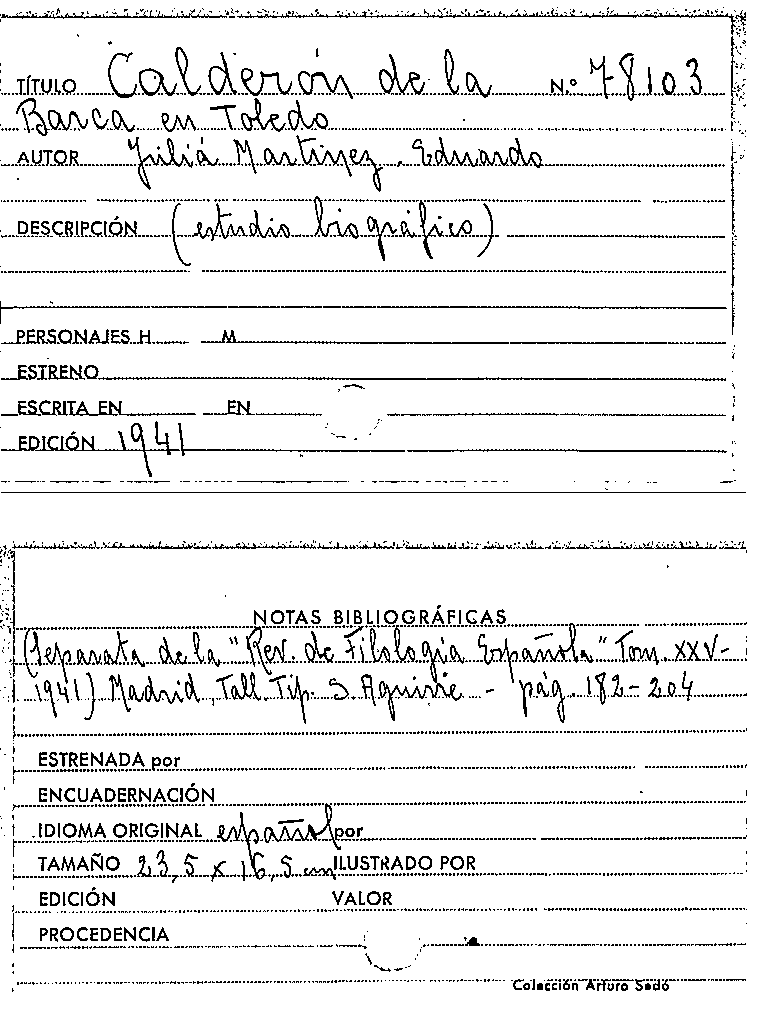 TÍTULO Calderón de la N.º 78103
Barca en Toledo
AUTOR Juliá Martínez, Eduardo
DESCRIPCIÓN (estudio biográfico)
PERSONAJES H M
ESTRENO
ESCRITA EN EN
EDICIÓN 1941
NOTAS BIBLIOGRÁFICAS
(Separata de la "Rev. de Filología Española" Tom. XXV-
1941) Madrid, Tall. Tip. S. Aguirre - pág. 182-204
ESTRENADA por
ENCUADERNACIÓN
IDIOMA ORIGINAL español por
TAMAÑO 23,5 x 16,5 cm ILUSTRADO POR
EDICIÓN VALOR
PROCEDENCIA
Colección Arturo Sedó